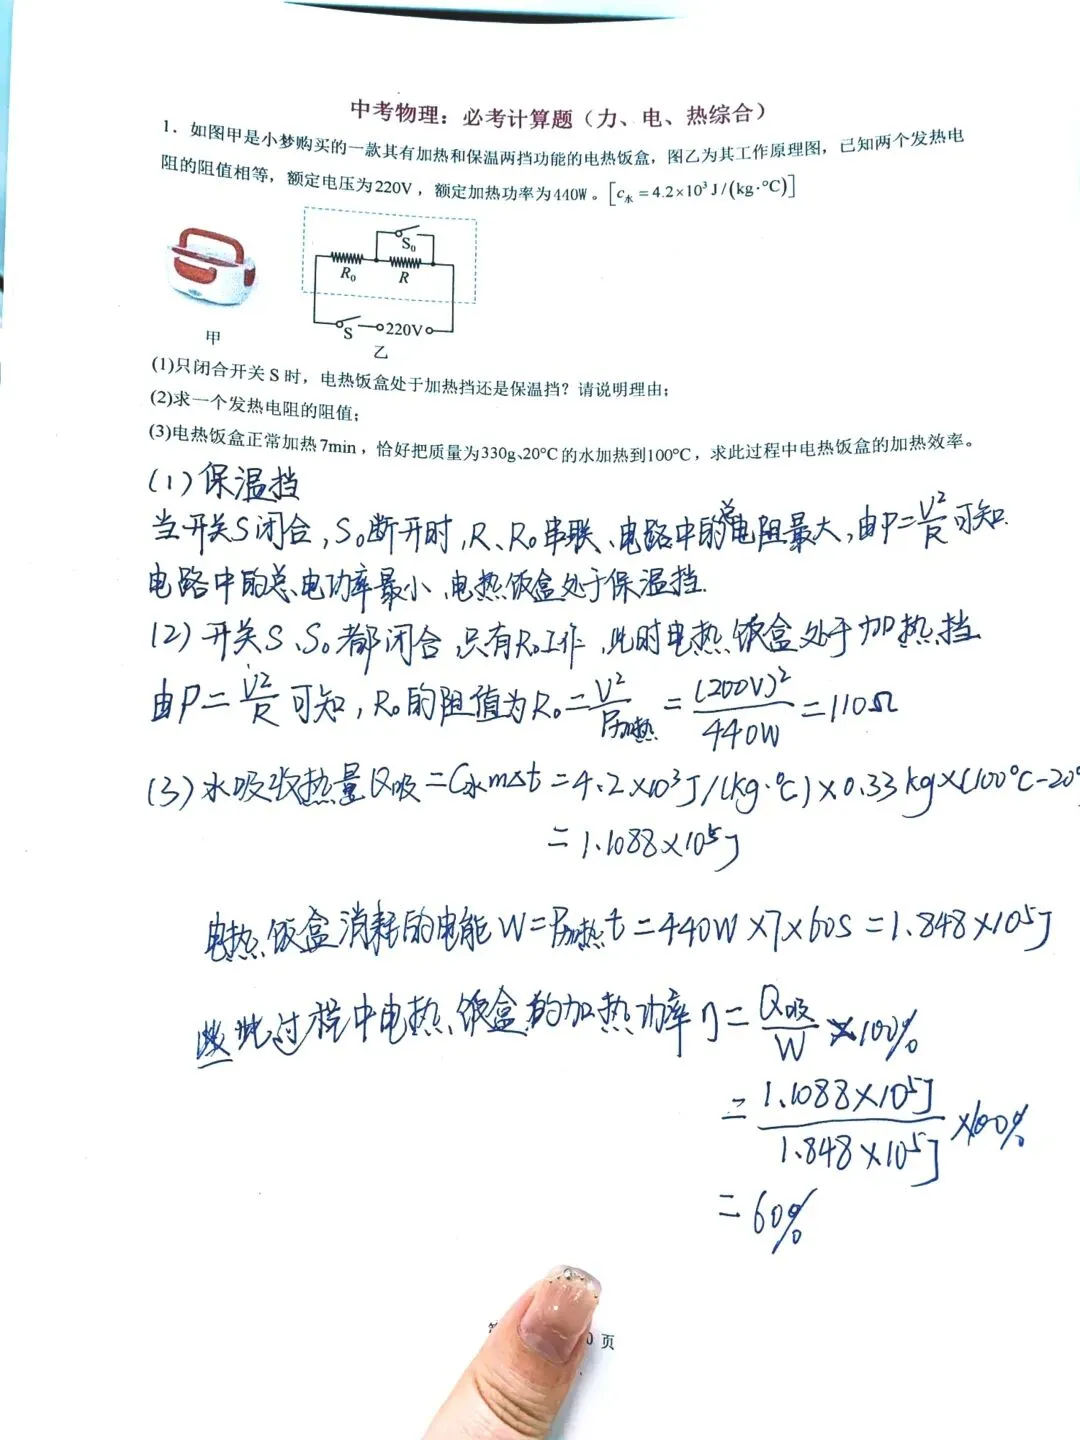 中考物理：必考计算题（力、电、热综合）
1．如图甲是小梦购买的一款其有加热和保温两挡功能的电热饭盒，图乙为其工作原理图，已知两个发热电
阻的阻值相等，额定电压为220V，额定加热功率为440W。[c水=4.2×10³J/(kg·°C)]
S₀
R₀
R
S
220V
甲
乙
(1)只闭合开关 S 时，电热饭盒处于加热挡还是保温挡？请说明理由；
(2)求一个发热电阻的阻值；
(3)电热饭盒正常加热7min，恰好把质量为330g、20°C的水加热到100°C，求此过程中电热饭盒的加热效率。
(1)保温挡
当开关S闭合,S₀断开时,R、R₀串联、电路中的总电阻最大,由P=U²/R可知
电路中的总电功率最小、电热饭盒处于保温挡.
(2)开关S、S₀都闭合,只有R₀工作,此时电热饭盒处于加热挡
由P=U²/R可知,R₀的阻值为R₀=U²/P加热=(200V)²/440W=110Ω
(3)水吸收热量Q吸=C水mΔt=4.2×10³J/(kg·°C)×0.33kg×(100°C-20°
=1.1088×10⁵J
电热饭盒消耗的电能W=P加热t=440W×7×60s=1.848×10⁵J
此过程中电热饭盒的加热功率η=Q吸/W×100%
=1.1088×10⁵J/1.848×10⁵J×100%
=60%
页